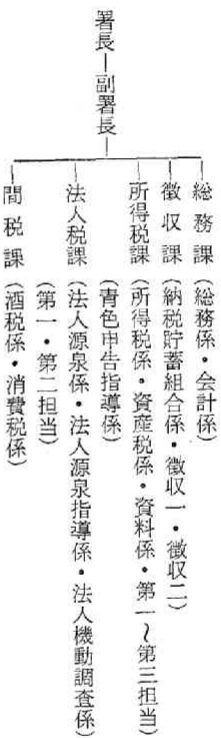 総務課(総務係・会計係)
徴収課(納税貯蓄組合係・徴収一・徴収二)
署長―副署長―
所得税課(所得税係・資産税係・資料係・第一〜第三担当)
(青色申告指導係)
法人税課(法人源泉係・法人源泉指導係・法人機動調査係)
(第一・第二担当)
間税課(酒税係・消費税係)